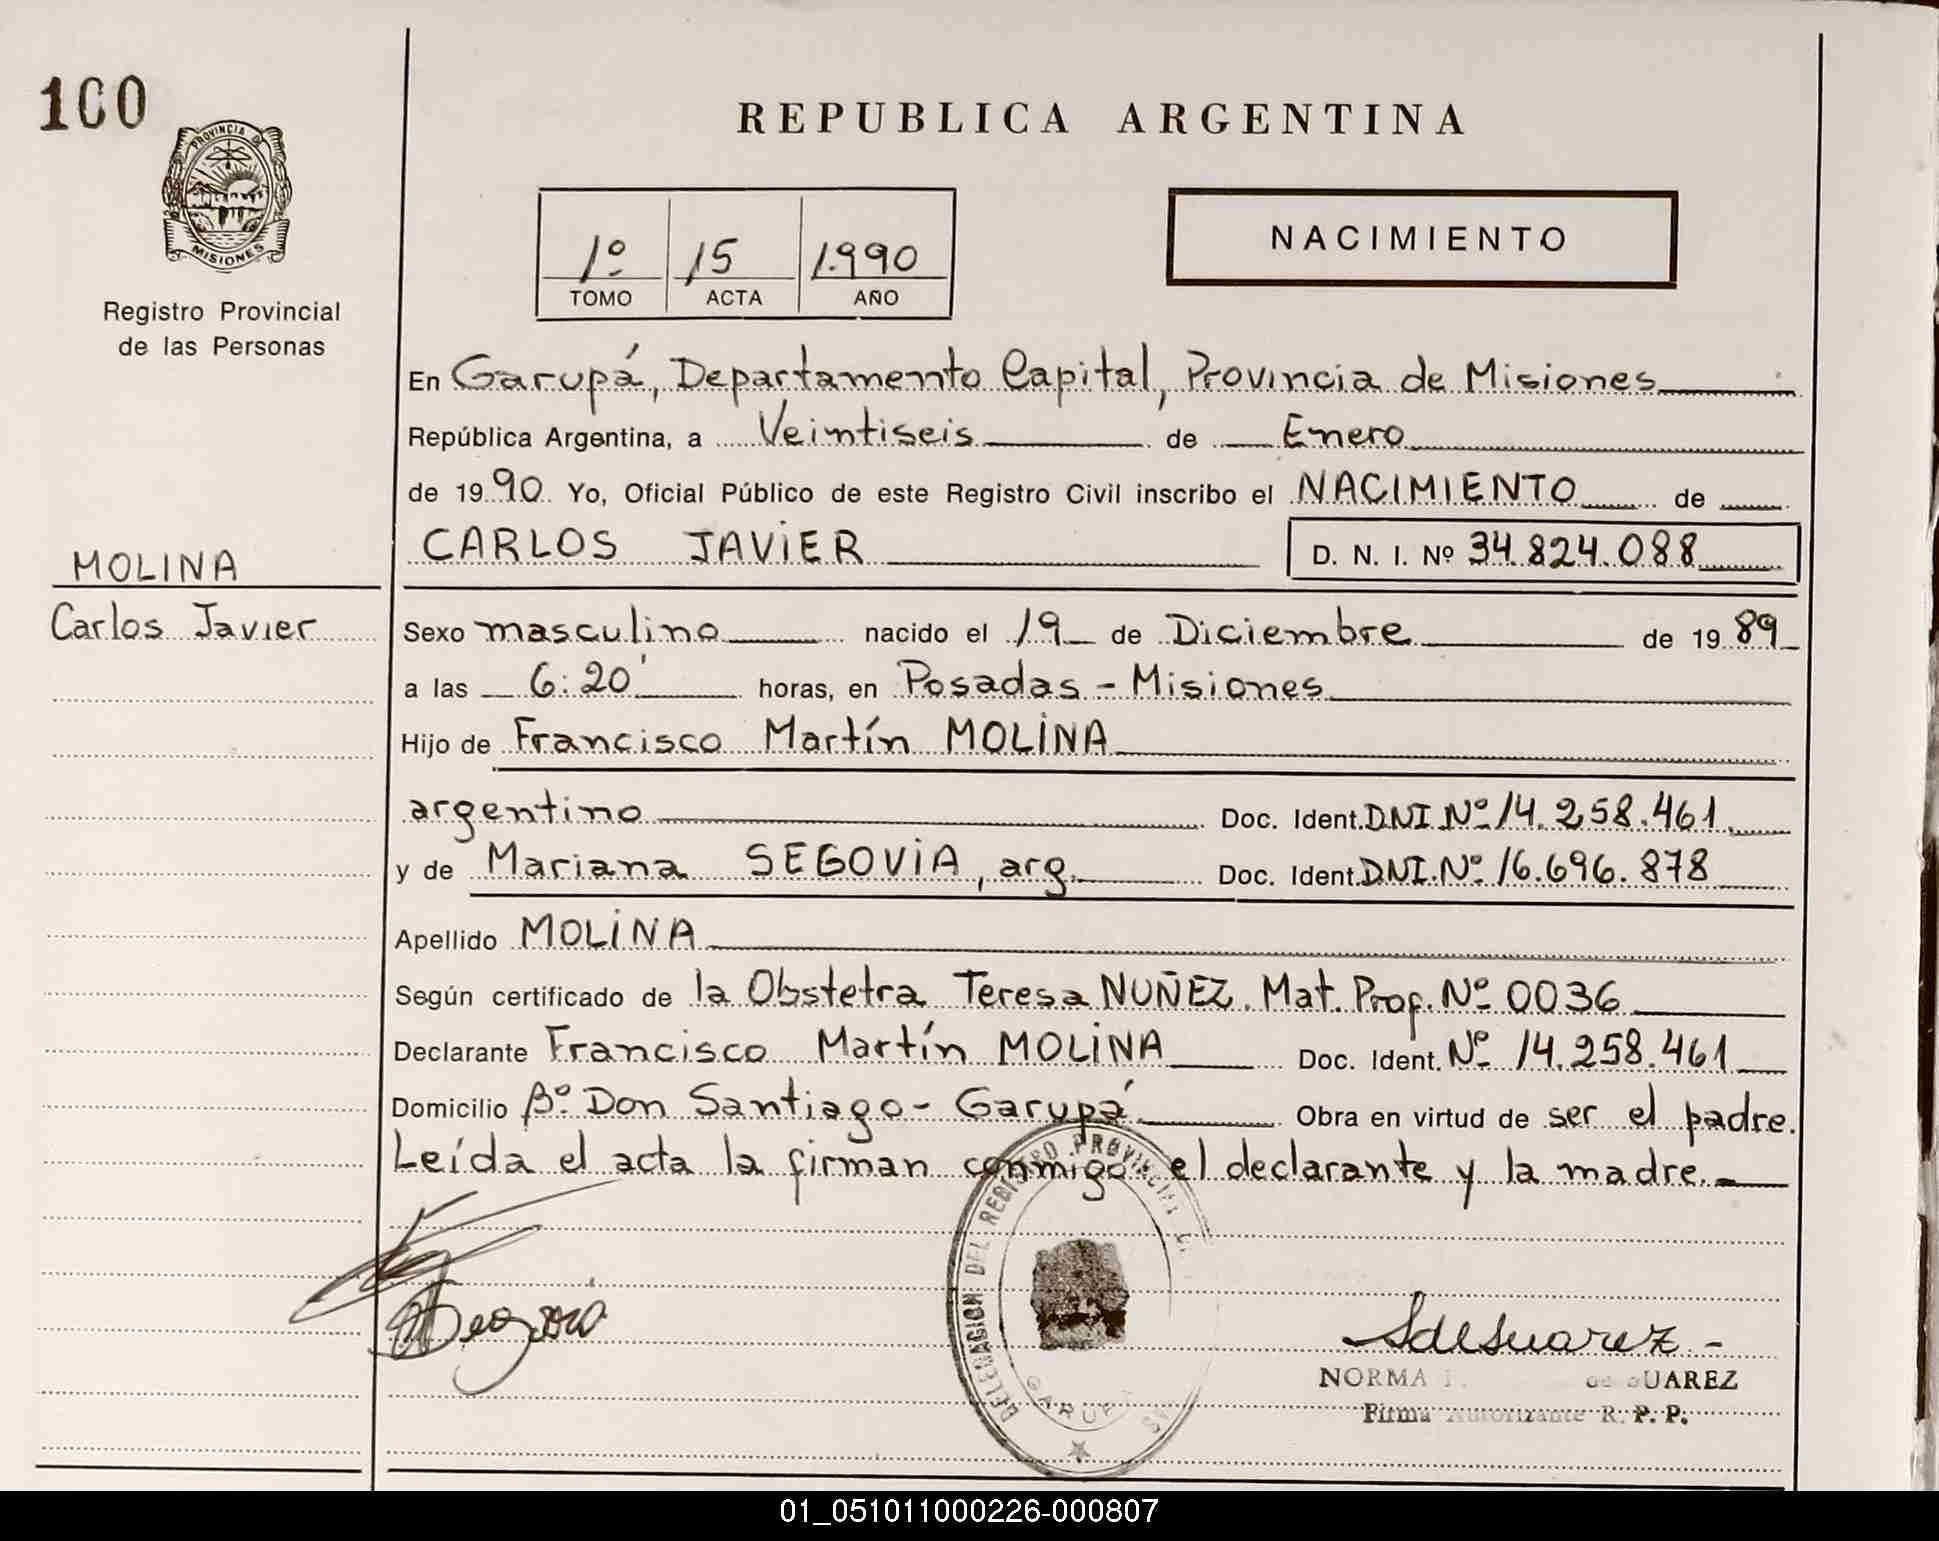 100
PROVINCIA DE
MISIONES
Registro Provincial
de las Personas
REPUBLICA ARGENTINA
1º 15 1.990
TOMO ACTA AÑO
NACIMIENTO
En Garupá, Departamento Capital, Provincia de Misiones
República Argentina, a Veintiseis de Enero
de 1990 Yo, Oficial Público de este Registro Civil inscribo el NACIMIENTO de
CARLOS JAVIER D. N. I. Nº 34.824.088
MOLINA
Carlos Javier
Sexo masculino nacido el 19 de Diciembre de 1989
a las 6:20' horas, en Posadas - Misiones
Hijo de Francisco Martín MOLINA
argentino Doc. Ident. DNI Nº 14.258.461
y de Mariana SEGOVIA, arg. Doc. Ident. DNI. Nº 16.696.878
Apellido MOLINA
Según certificado de la Obstetra Teresa NUÑEZ. Mat. Prof. Nº 0036
Declarante Francisco Martín MOLINA Doc. Ident. Nº 14.258.461
Domicilio Bº Don Santiago - Garupá Obra en virtud de ser el padre.
Leída el acta la firman conmigo el declarante y la madre.-
DELEGACION DEL REGISTRO PROVINCIAL
GARUPA
Segovia
SdeSuarez -
NORMA de SUAREZ
Firma Autorizante R. P. P.
01_051011000226-000807